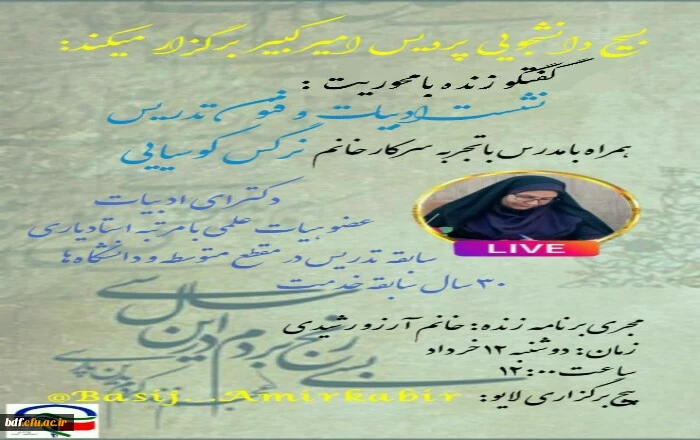 بسیج دانشجویی پردیس امیرکبیر برگزار میکند:
گفتگو زنده با محوریت :
نشست ادبیات و فنون تدریس
همراه با مدرس با تجربه سرکار خانم نرگس کوسیایی
دکترای ادبیات
عضو هیات علمی با مرتبه استادیاری
سابقه تدریس در مقطع متوسط و دانشگاه ها
۳۰ سال سابقه خدمت
LIVE
بسی رنج بردم در این سال سی
مجری برنامه زنده: خانم آرزو رشیدی
زمان: دوشنبه ۱۲ خرداد
ساعت ۱۲:۰۰
پیج برگزاری لایو: @Basij_Amirkabir
bdf.cfu.ac.ir